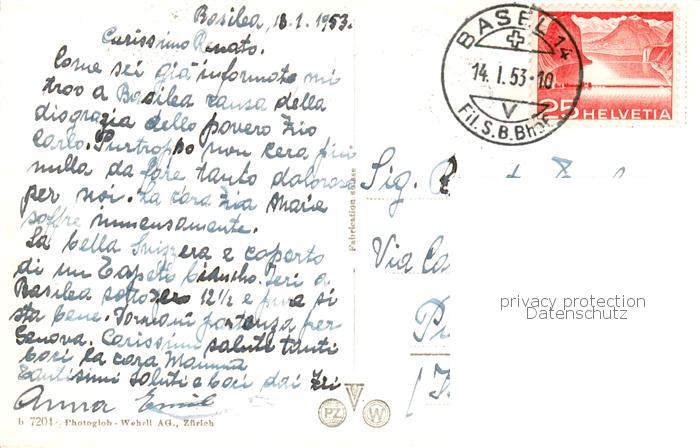 Basilea, 13.1.1953.
Carissimo Renato.
Come sei già informato mi
trovo a Basilea causa della
disgrazia dello povero Zio
Carlo. Purtroppo non cera più
nulla da fare tanto dolorosa
per noi. La cara Zia Maria
soffre immensamente.
La bella Svizzera e coperto
di un Tapeto biancho. Ieri a
Basilea sottozero 12½ e pura si
sta bene. Domani partenza per
Genova. Carissimi saluti e tanti
baci la cara Mamma
Tantissimi saluti e baci dai Zii
Anna Emil
b 7204 Photoglob - Wehrli AG., Zürich
Fabrication suisse
PZ W
BASEL 14
14.I.53-10
V
Fil.S.B.Bhof
25 HELVETIA
Sig.
Via
privacy protection
Datenschutz